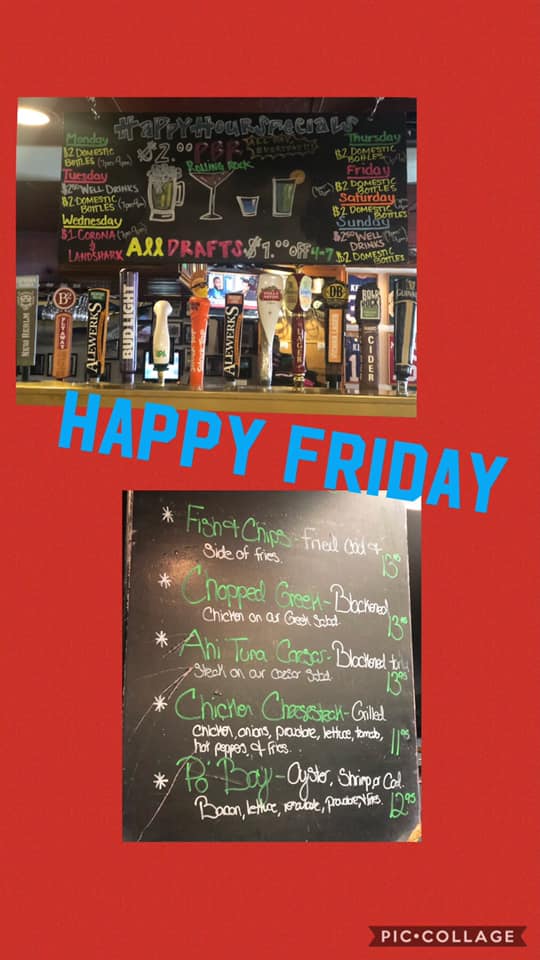 Happy Hour Specials
Monday
$2 Domestic
Bottles (7pm-9pm)
Tuesday
$2.50 Well Drinks
$2 Domestic
Bottles
Wednesday
$1 Corona
&
Landshark
$2.00 PBR
Rolling Rock
All Drafts $1.00 off 4-7
Thursday
$2 Domestic
Bottles
Friday
$2 Domestic
Bottles
Saturday
$2 Domestic
Bottles
Sunday
$2.50 Well
Drinks
$2 Domestic
Bottles
NEW REALM
FLYAWAY
ALEWERKS
BUD LIGHT
ALEWERKS
LAGER
DB
BOLD ROCK
CIDER
GUINNESS
HAPPY FRIDAY
* Fish & Chips - Fried Cod &
Side of fries. 13.95
* Chopped Greek - Blackened
Chicken on our Geek Salad. 13.95
* Ahi Tuna Caesar - Blackened tuna
Steak on our caesar Salad. 13.95
* Chicken Cheesesteak - Grilled
chicken, onions, provolone, lettuce, tomato,
hot peppers, & fries. 11.95
* Po' Boy - Oyster, Shrimp or Cod.
Bacon, lettuce, remoulade, provolone, & fries. 12.95
PIC•COLLAGE